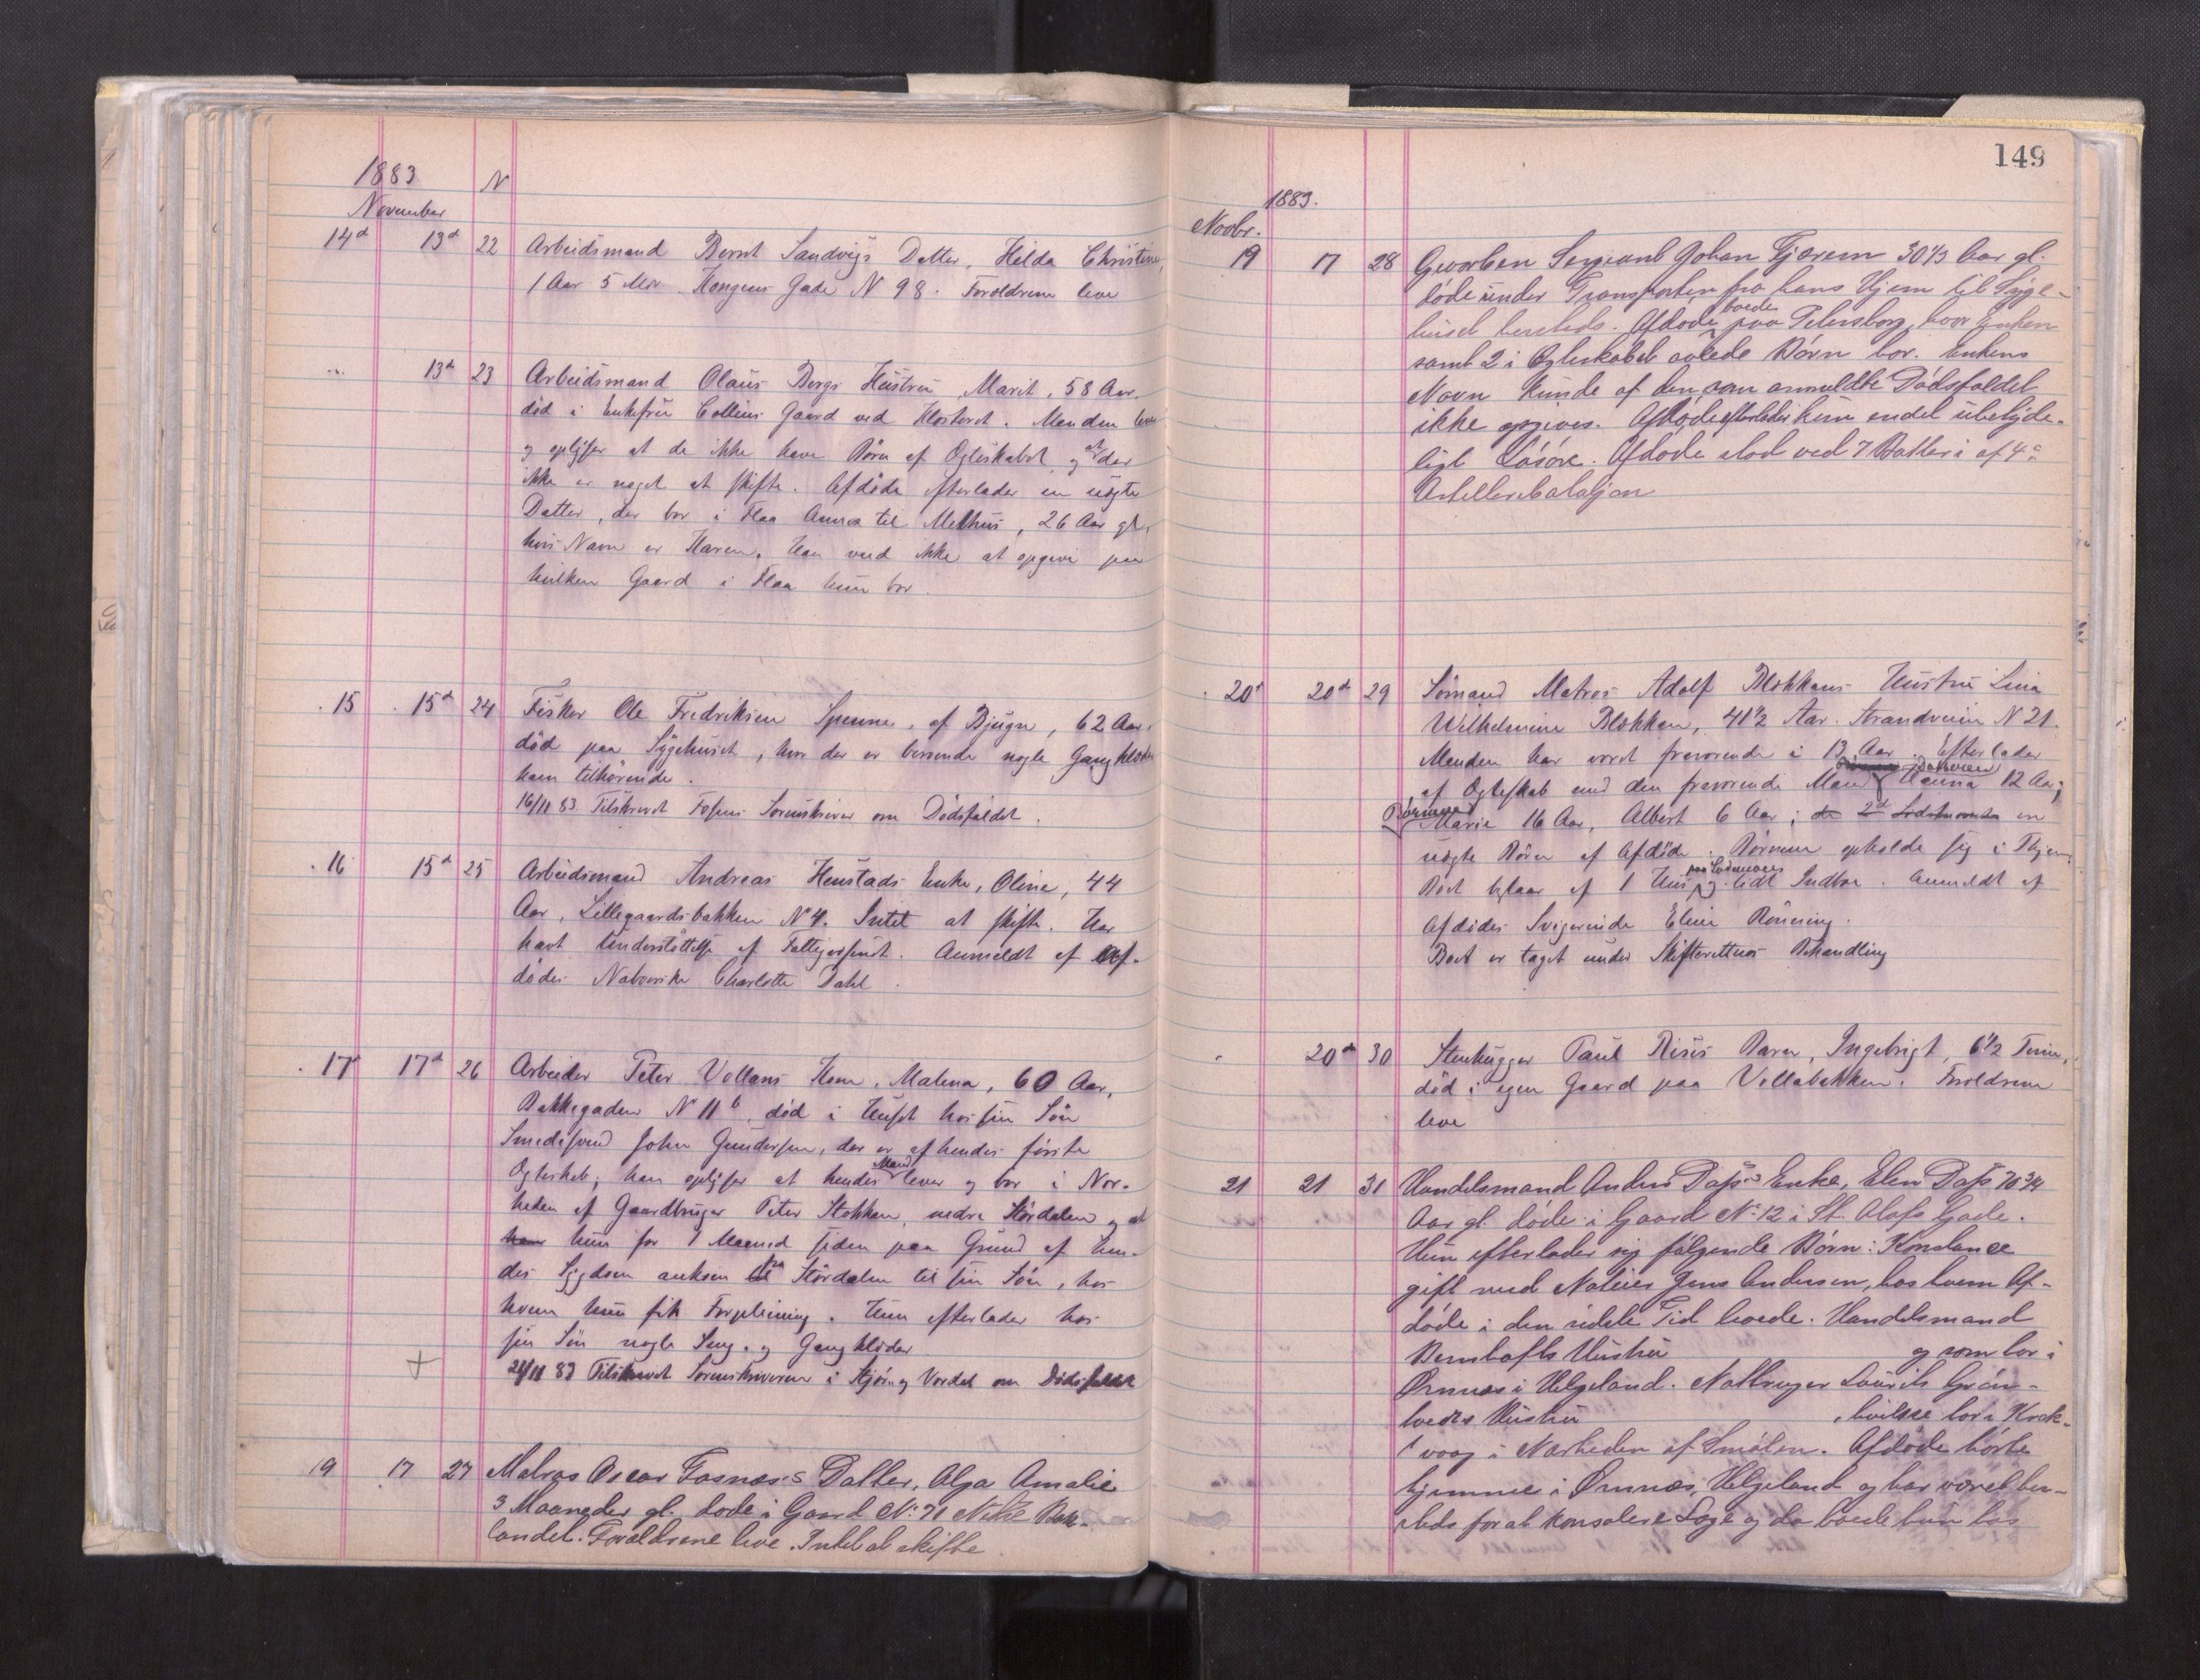 1883 N
November
14d 13d 22 Arbeidsmand Bernt Sandvigs Datter, Hilda Christine,
1 Aar 5 Mdr. Kongens Gade N 98. Forældrene leve
13d 23 Arbeidsmand Olaus Bergs Hustru Marit, 58 Aar.
død i Enkefru Collins Gaard ved Klosteret. Manden lever
og oplyser at de ikke have Børn af Ægteskabet, og at der
ikke er noget at skifte. Afdøde efterlader en uægte
Datter, der bor i Flaa Annex til Melhus, 26 Aar gl.
hvis Navn er Karen. Han ved ikke at opgive paa
hvilken Gaard i Flaa hun bor.
15 15d 24 Fisker Ole Fredriksen af Bjugn, 62 Aar,
død paa Sygehuset, hvor der er beroende nogle Gangklæder
ham tilhørende.
16/11 83 Tilskrevet Fosens Sorenskriver om Dødsfaldet.
16 15d 25 Arbeidsmand Andreas Hustads Enke, Oline, 44
Aar, Lillegaardsbakken N 4. Intet at skifte. Har
havt Understøttelse af Fattigvæsenet. Anmeldt af Af-
dødes Naboerske Charlotte Dahl.
17d 17d 26 Arbeider Peter Vollans Kone, Malena, 60 Aar,
Bakkegaden N 11b, død i Huset hos sin Søn
Smedesvend John Gundersen, der er af hendes første
Ægteskab; han oplyser at hendes Mand lever og bor i Nær-
heden af Gaardbruger Peter Stokkan, nedre Stördalen og at
hun for 1 Maaned siden paa Grund af hen-
des Sygdom ankom fra Stördalen til sin Søn, hos
hvem hun fik Forpleining. Hun efterlader hos
sin Søn nogle Seng- og Gangklæder
24/11 83 Tilskrevet Sorenskriveren i Stjør- og Værdal om Dødsfaldet
19 17 27 Matros Oscar Fosnæs's Datter, Alga Amalie
3 Maaneder gl. døde i Gaard No. 71 Nedre Bak-
landet. Forældrene leve. Intet at skifte.
149
1883.
Novbr.
19 17 28 Gevorben Sergeant Johan Fjærem 30 1/3 Aar gl.
døde under Transporten fra hans Hjem til Syge-
huset hersteds. Afdøde boede paa Petersborg, hvor Enken
samt 2 i Ægteskabet avlede Børn bor. Enkens
Navn kunde af den som anmeldte Dødsfaldet
ikke opgives. Afdøde efterlader kun endel ubetyde-
ligt Løsøre. Afdøde stod ved 7 Batteri af 4de
Artelleribataljon
20d 20d 29 Sømand Matros Adolf Blokkans Hustru Lina
Wilhelmine Blokkan, 41 1/2 Aar. Strandveien N 21.
Manden har været fraværende i 13 Aar. Efterlader
af Ægteskab med den fraværende Mand Hanna 12 Aar;
Børnene Marie 16 Aar, Albert 6 Aar; er
uægte Børn af Afdøde. Børnene opholde sig i Hjem.
Boet bestaar af 1 Hus og lidt Indbo. Anmeldt af
Afdødes Svigerinde Eline Rønning.
Boet er taget under Skifterettens Behandling
20d 30 Stenhugger Paul Risés Barn, Ingebrigt, 6 1/2 Time,
død i egen Gaard paa Vollabakken. Forældrene
leve
21 21 31 Handelsmand Anders Dass's Enke, Elen Dass 70 3/4
Aar gl. døde i Gaard No. 12 i St. Olafs Gade.
Hun efterlader sig følgende Børn: Konstance
gift med Jens Andersen, hos hvem Af-
døde i den sidste Tid boede. Handelsmand
Benshofts Hustru og som bor i
Ørnnæs i Helgeland. Notbruger Laurits Grøn-
Hustru , hvilke bor i Krak-
vaag i Nærheden af Smølen. Afdøde hørte
hjemme i Ørnnæs, Helgeland og har været her-
steds for at konsulere Læge og da boede hun hos